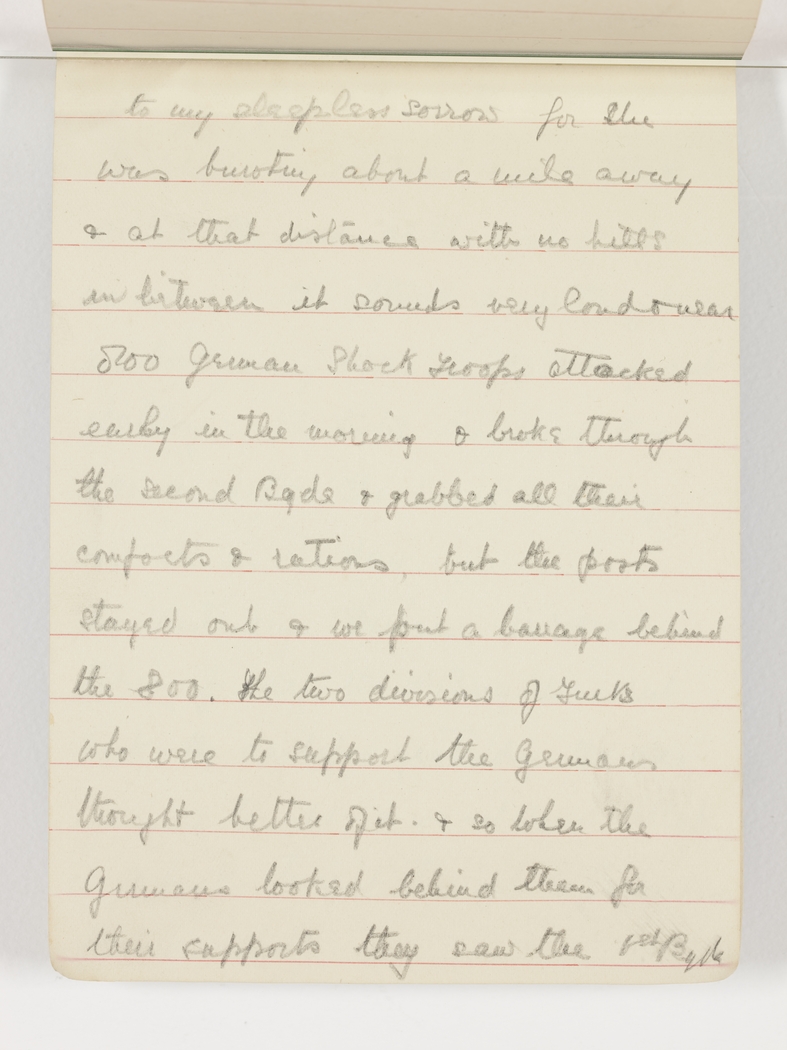 to my sleepless sorrow for she
was bursting about a mile away
& at that distance with no hills
in between it sounds very loud & near
800 German Shock Troops attacked
early in the morning & broke through
the second Bgde & grabbed all their
comforts & rations, but the posts
stayed out & we put a barrage behind
the 800. The two divisions of Turks
who were to support the Germans
thought better of it. & so when the
Germans looked behind them for
their supports they saw the 1st Bgde